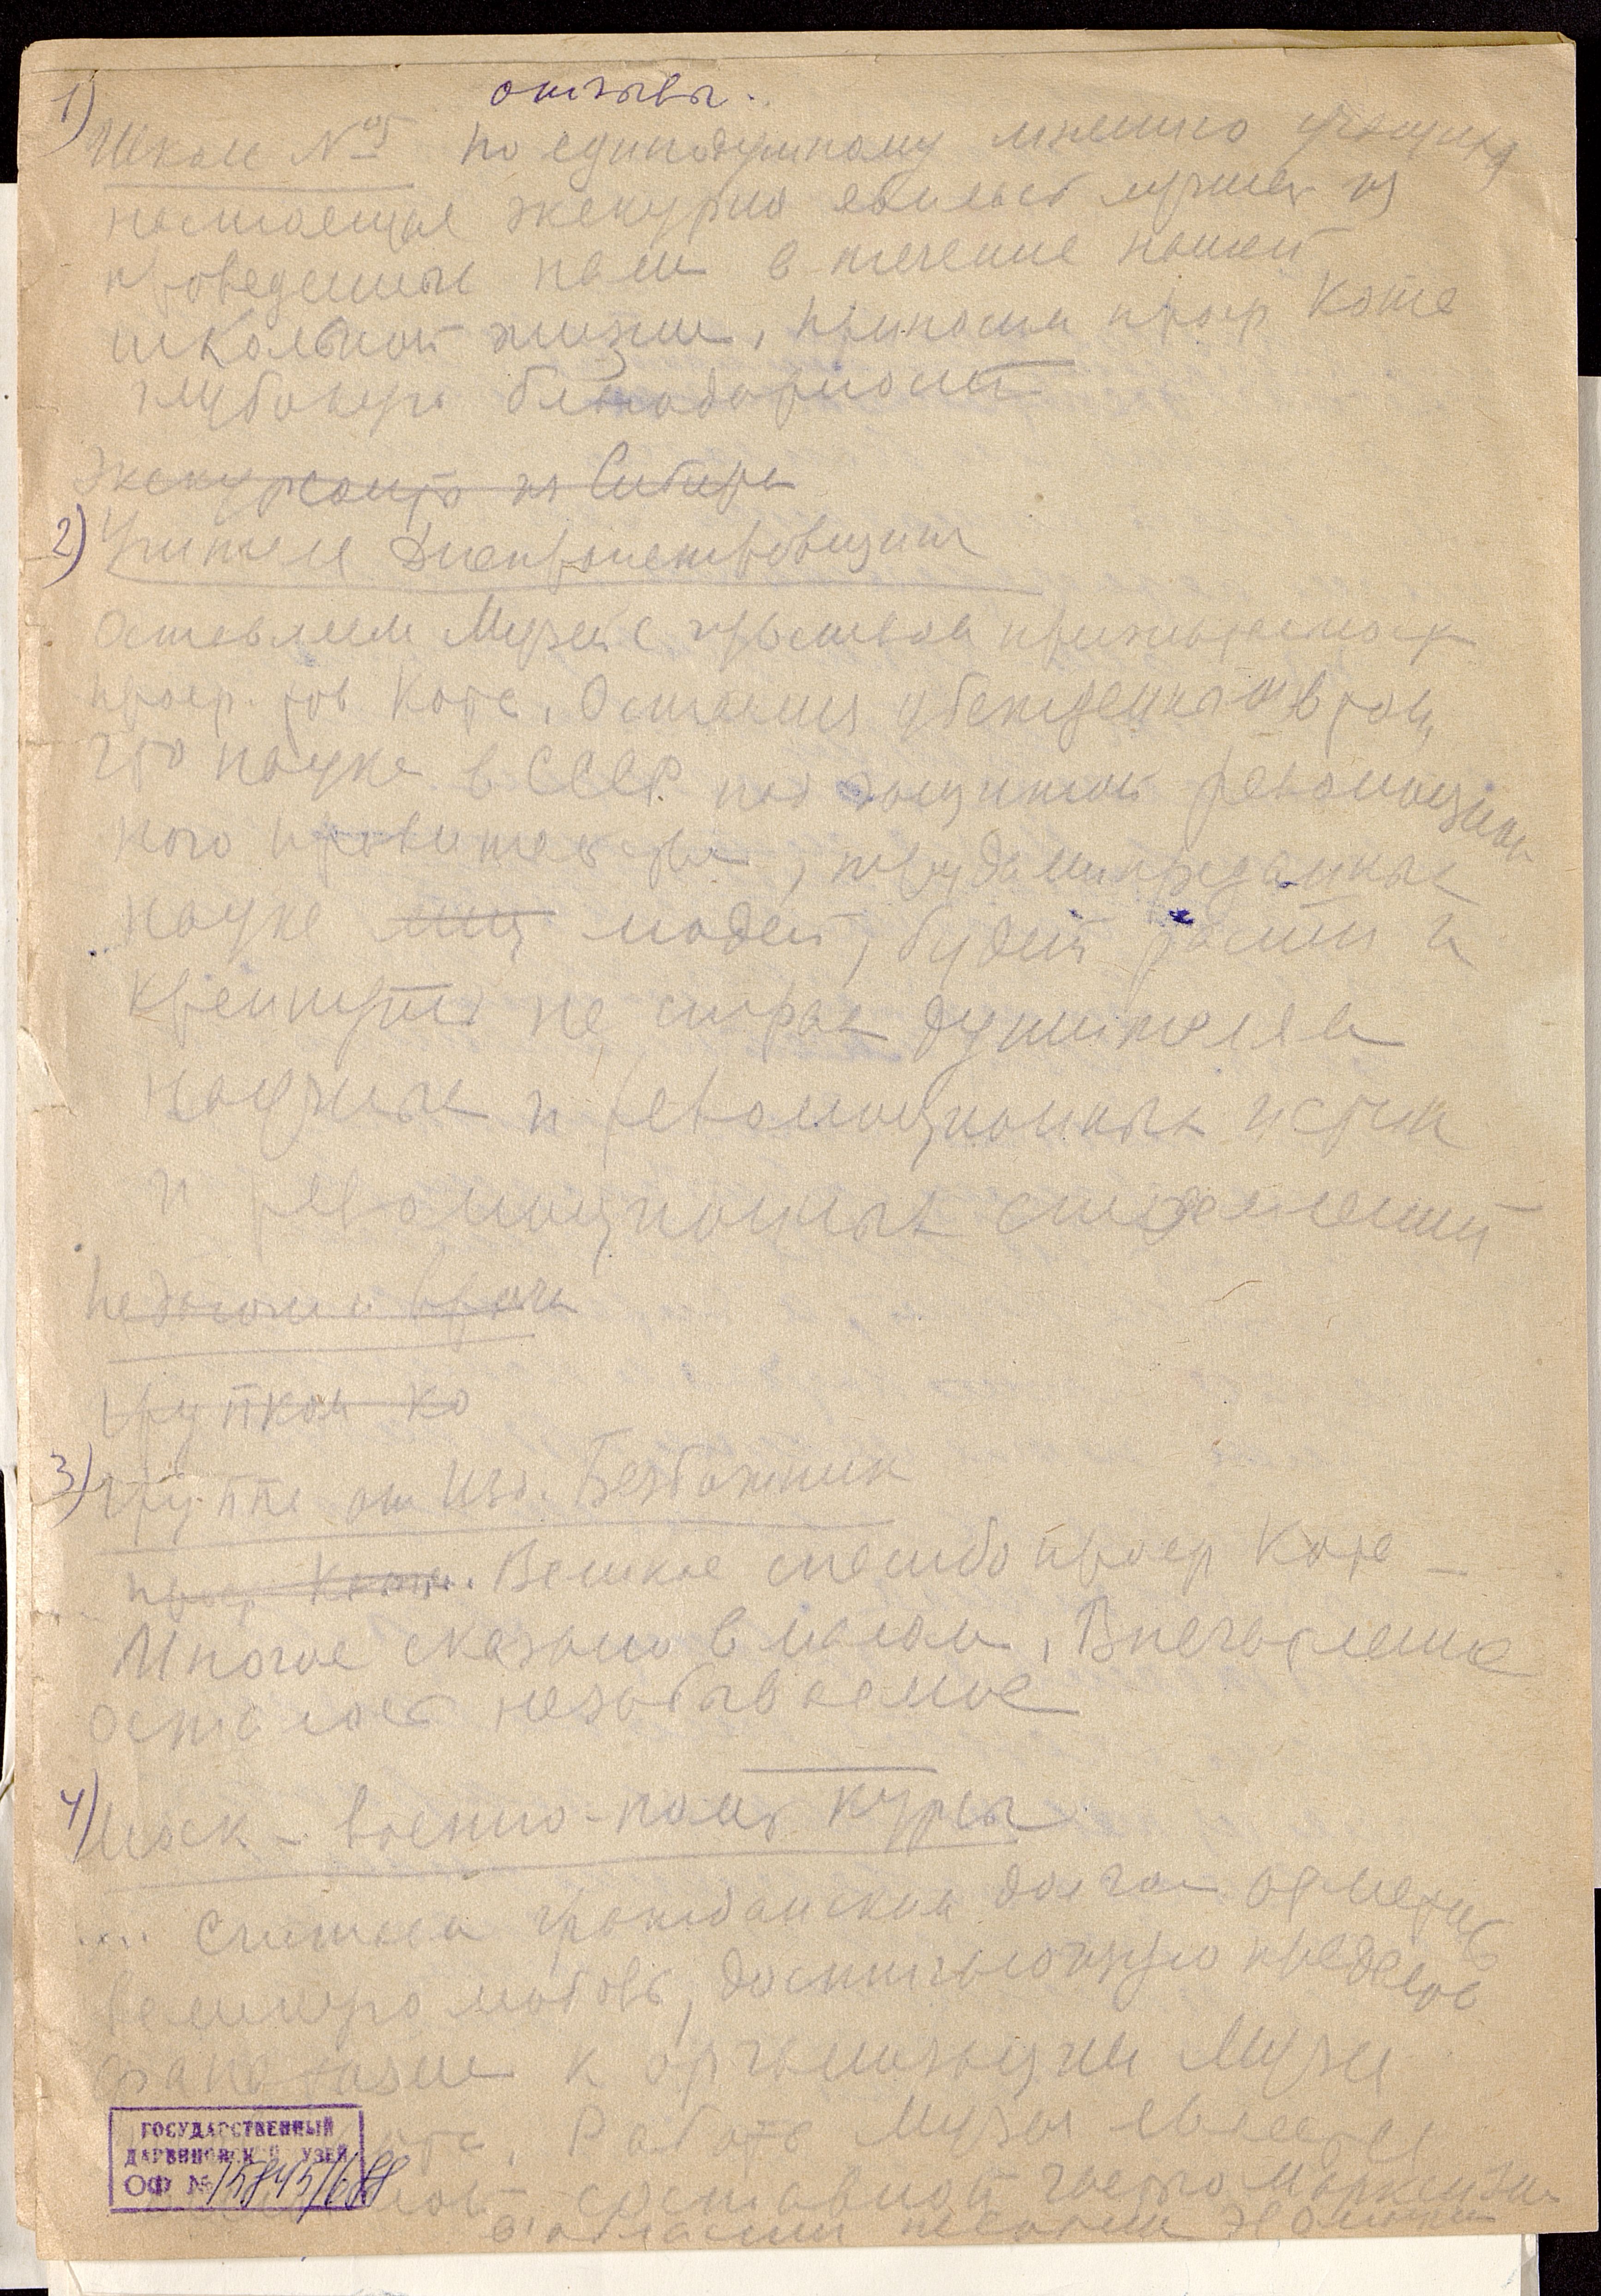 отзывы.
1)
Школе №5 По единодушному мнению учащихся
настоящая экскурсия явилась лучшей из
проведенных нами в течение нашей
школьной жизни, приносим проф Котс
глубокую благодарность
Экскурсанты из Сибири
2) Учителя Днепропетровщины
Оставляем Музей с чувством признательности к
проф. тов Котс. Остаемся убежденными в том,
что наука в СССР под защитой революцион
ного правительства, трудами преданных
науке лиц людей, будет расти и
крепнуть на страх душителям
научных и революционных истин
и революционных стремлений
Педагоги врачи
группком ко
3) Группа от Изд. Безбожник
проф Котс. Великое спасибо проф Котс –
Многое сказано в малом, Впечатление
осталось незабываемое
4) Моск – военно-полит курсы
.... Считаем гражданским долгом отметить
великую любовь, достигающую пределов
фанатизма к организации Музея
Работа Музея является
составной частью марксизма
в области
ГОСУДАРСТВЕННЫЙ
ДАРВИНОВСКИЙ МУЗЕЙ
ОФ № 15845/688